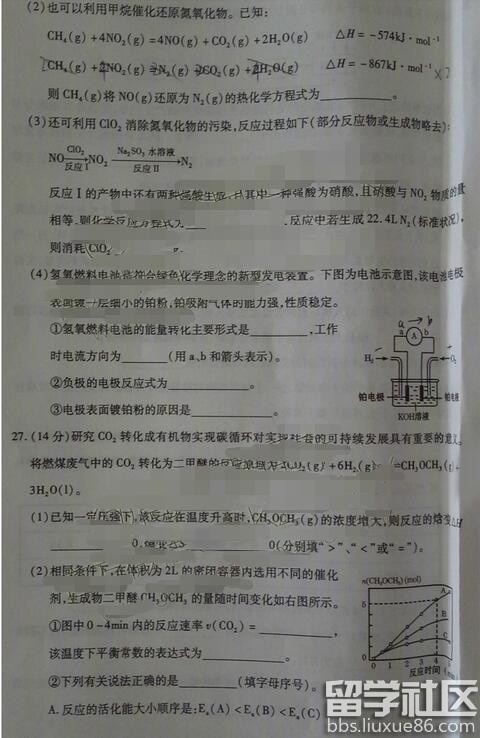 (2)也可以利用甲烷催化还原氮氧化物。已知:
CH₄(g)+4NO₂(g)=4NO(g)+CO₂(g)+2H₂O(g) △H=-574kJ·mol⁻¹
CH₄(g)+2NO₂(g)=N₂(g)+CO₂(g)+2H₂O(g) △H=-867kJ·mol⁻¹ ×2
则CH₄(g)将NO(g)还原为N₂(g)的热化学方程式为____________。
(3)还可利用ClO₂消除氮氧化物的污染,反应过程如下(部分反应物或生成物略去):
NO ClO₂ 反应Ⅰ NO₂ Na₂SO₃水溶液 反应Ⅱ N₂
反应Ⅰ的产物中还有两种强酸生成,且其中一种强酸为硝酸,且硝酸与NO₂物质的量
相等,则化学反应方程式为 ,反应中若生成22.4L N₂(标准状况),
则消耗ClO₂
(4)氢氧燃料电池是符合绿色化学理念的新型发电装置。下图为电池示意图,该电池电极
表面镀一层细小的铂粉,铂吸附气体的能力强,性质稳定。
①氢氧燃料电池的能量转化主要形式是________,工作
时电流方向为______(用a、b和箭头表示)。
②负极的电极反应式为____________。
③电极表面镀铂粉的原因是____________。
a → b
a A b
H₂ O₂
铂电极 铂电极
KOH溶液
27.(14分)研究CO₂转化成有机物实现碳循环对实现社会的可持续发展具有重要的意义。
将燃煤废气中的CO₂转化为二甲醚的反应原理为:2CO₂(g)+6H₂(g) =CH₃OCH₃(g)+
3H₂O(l)。
(1)已知一定压强下,该反应在温度升高时,CH₃OCH₃(g)的浓度增大,则反应的焓变△H
________0, 0(分别填">"、"<"或"=")。
(2)相同条件下,在体积为2L的密闭容器内选用不同的催化
剂,生成物二甲醚CH₃OCH₃的量随时间变化如右图所示。
①图中0-4min内的反应速率v(CO₂)=____________,
该温度下平衡常数的表达式为____________。
②下列有关说法正确的是________(填字母序号)。
A.反应的活化能大小顺序是:Eₐ(A)<Eₐ(B)<Eₐ(C)
n(CH₃OCH₃)(mol)
5
A
B
C
0 1 2 3 4
反应时间
留学社区
bbs.liuxue86.com